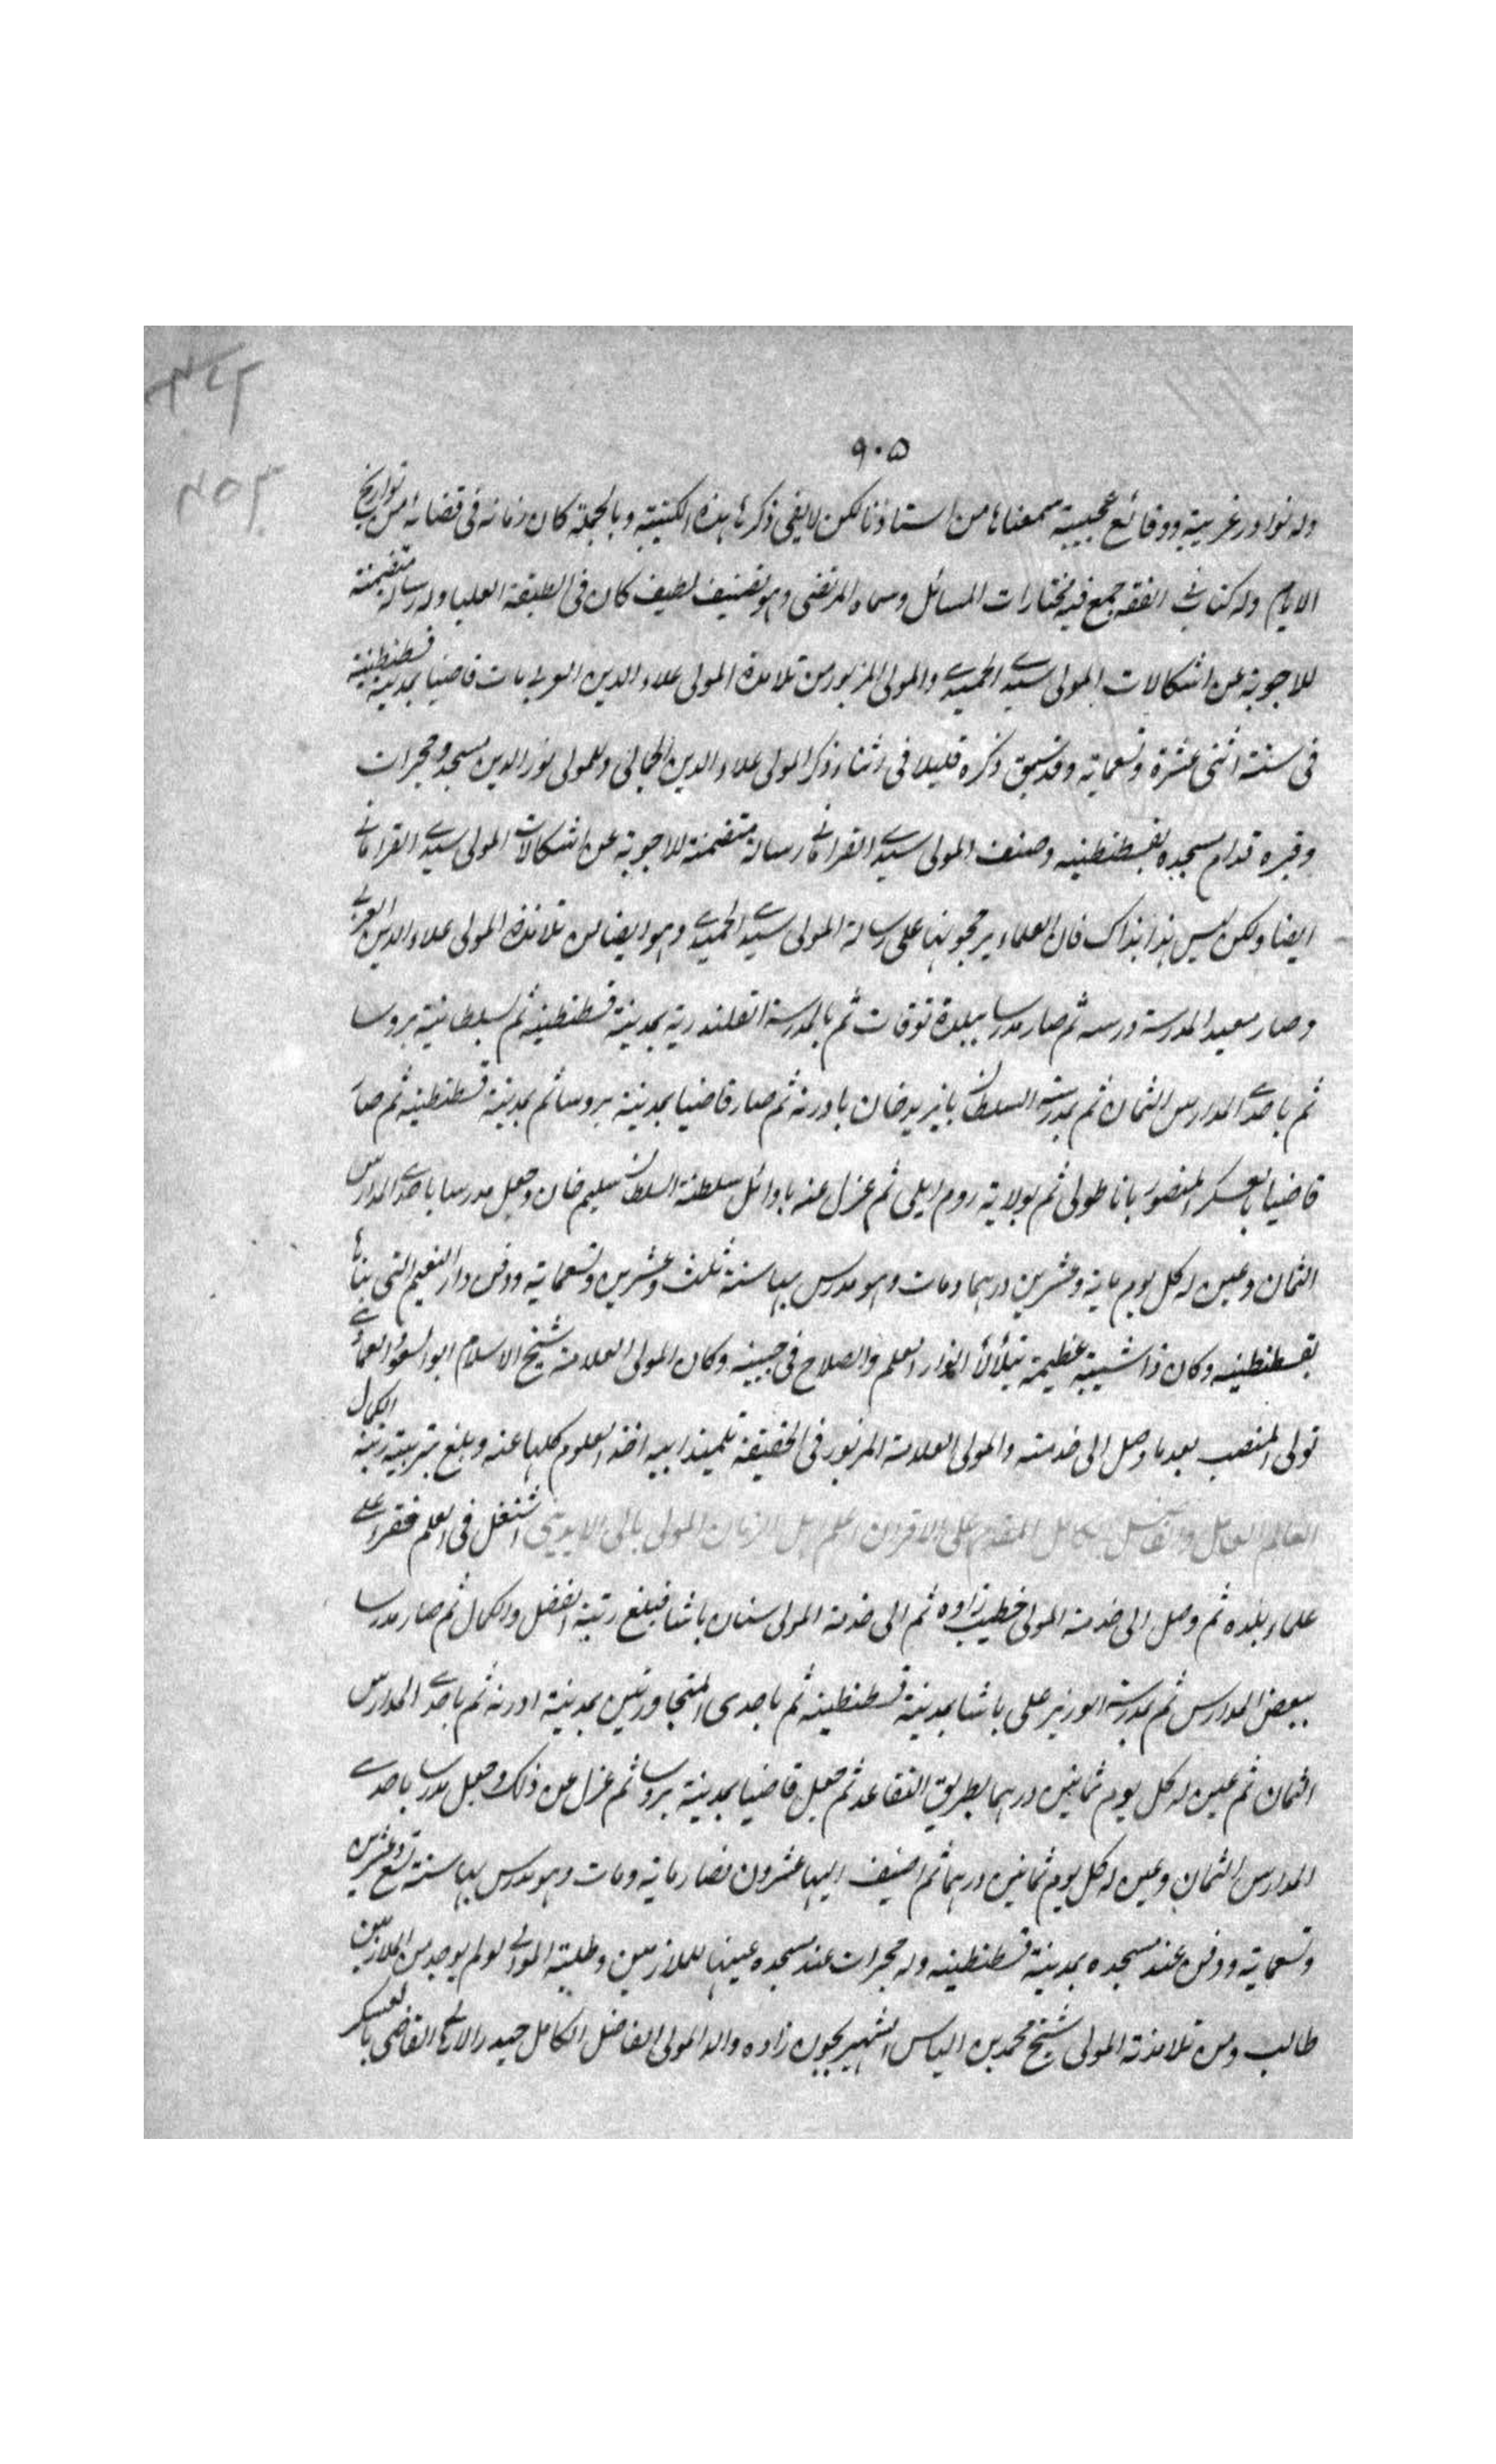 ٩٠٥
وله نوادر غريبة ووقائع عجيبة سمعناها من استاذنا لكن لا يفى ذكرها هذه الكتيبة وبالجملة كان زمانه فى قضائه من تواريخ
الايام وله كتاب فى الفقه جمع فيه مختارات المسائل وسماه المرتضى وهو تصنيف لطيف كان فى الطبقة العليا وله رسالة متضمنة
للاجوبة عن اشكالات المولى سيدى الحميدى والمولى المزبور من تلامذة المولى علاء الدين العربى مات قاضيا بمدينة قسطنطينية
فى سنة اثنى عشرة وتسعماية وقد سبق ذكره قليلا فى اثناء ذكر المولى علاء الدين الجمالى وللمولى نور الدين مسجد وحجرات
وقبره قدام مسجده بقسطنطينيه وصنف المولى سيدى القرامانى رسالة متضمنة للاجوبة عن اشكالات المولى سيدى القرامانى
ايضا ولكن ليس هذا بذاك فان العلماء يرجحونها على رسالة المولى سيدى الحميدى وهو ايضا من تلامذة المولى علاء الدين العربى
وصار معيدا لمدرسة درسه ثم صار مدرسا ببلدة توقات ثم بالمدرسة القلندرية بمدينة قسطنطينيه ثم بسلطانية بروسا
ثم باحدى المدارس الثمان ثم بمدرسة السلطان بايزيد خان بادرنه ثم صار قاضيا بمدينة بروسا ثم بمدينة قسطنطينيه ثم صار
قاضيا بالعسكر المنصور باناطولى ثم بولاية روم ايلى ثم عزل عنه باوائل سلطنة السلطان سليم خان وجعل مدرسا باحدى المدارس
الثمان وعين له كل يوم ماية وعشرين درهما ومات وهو مدرس بها سنة ثلث وعشرين وتسعماية ودفن دار التعليم التى بناها
بقسطنطينيه وكان ذا شيبة عظيمة يتلألأ انوار العلم والصلاح فى جبينه وكان المولى العلامة شيخ الاسلام ابو السعود العمادى
تولى المنصب بعد ما وصل الى خدمته والمولى العلامة المزبور فى الحقيقة تلميذ ابيه اخذ العلوم كلها عنه وبلغ بتربيته رتبة الكمال
العالم العامل والفاضل الكامل المقدم على الاقران اعلم اهل الزمان المولى بالى الايدينى اشتغل فى العلم فقرا على
علماء بلده ثم وصل الى خدمة المولى خطيب زاده ثم الى خدمة المولى سنان باشا فبلغ رتبة الفضل والكمال ثم صار مدرسا
ببعض المدارس ثم بمدرسة الوزير على باشا بمدينة قسطنطينيه ثم باحدى المتجاورتين بمدينة ادرنه ثم باحدى المدارس
الثمان ثم عين له كل يوم ثمانين درهما بطريق التقاعد ثم جعل قاضيا بمدينة بروسا ثم عزل عن ذلك وجعل مدرسا باحدى
المدارس الثمان وعين له كل يوم ثمانين درهما ثم اضيف اليها عشرون فصار ماية ومات وهو مدرس بها سنة تسع وعشرين
وتسعماية ودفن عند مسجده بمدينة قسطنطينيه وله حجرات عند مسجده عينها للملازمين وطلبة الموالى لو لم يوجد من الملازمين
طالب ومن تلامذة المولى شيخ محمد بن الياس الشهير بجوى زاده والد المولى الفاضل الكامل حيدر القاضى بالعسكر